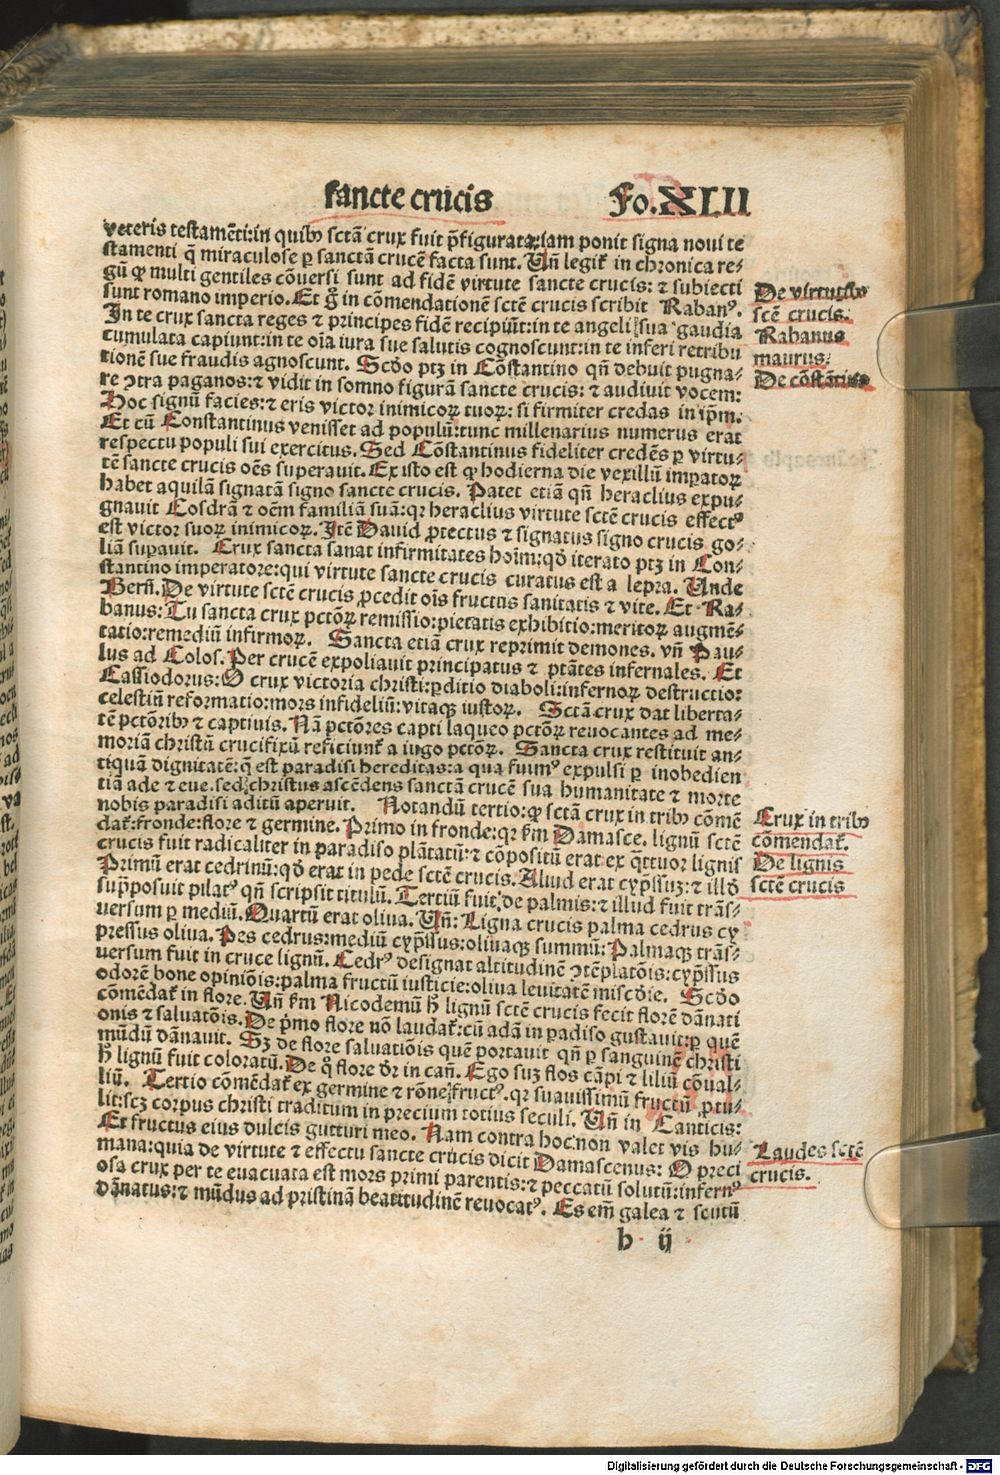 sancte crucis
Fo.XLII
veteris testamēti:in quibꝰ sctā crux fuit p̄figurata:iam ponit signa noui te
stamenti q̄ miraculose ꝑ sanctā crucē facta sunt. Uñ legit̄ in chronica re⸗
gū ꝙ multi gentiles cōuersi sunt ad fidē virtute sancte crucis: ⁊ subiecti
sunt romano imperio. Et g̊ in cōmendationē sctē crucis scribit Rabanꝰ.
In te crux sancta reges ⁊ principes fidē recipiūt:in te angeli sua gaudia
cumulata capiunt:in te oīa iura sue salutis cognoscunt:in te inferi retribu
tionē sue fraudis agnoscunt. Scd̄o ptꝫ in Cōstantino qn̄ debuit pugna⸗
re ꝯtra paganos:⁊ vidit in somno figurā sancte crucis: ⁊ audiuit vocem:
Hoc signū facies:⁊ eris victor inimicoꝝ tuoꝝ: si firmiter credas in ip̄m.
Et cū Constantinus venisset ad populū:tunc millenarius numerus erat
respectu populi sui exercitus. Sed Cōstantinus fideliter credēs ꝑ virtu⸗
tē sancte crucis oēs superauit. Ex isto est ꝙ hodierna die vexillū imꝑatoꝝ
habet aquilā signatā signo sancte crucis. Patet etiā qn̄ heraclius expu⸗
gnauit Cosdrā ⁊ oēm familiā suā:qꝛ heraclius virtute sctē crucis effectꝰ
est victor suoꝝ inimicoꝝ. Itē Dauid ꝓtectus ⁊ signatus signo crucis go⸗
liā suꝑauit. Crux sancta sanat infirmitates hoīm:qd̄ iterato ptꝫ in Con⸗
stantino imperatore:qui virtute sancte crucis curatus est a lepra. Unde
Berñ. De virtute sctē crucis ꝓcedit oīs fructus sanitatis ⁊ vite. Et Ra⸗
banus: Tu sancta crux pctōꝝ remissio:pietatis exhibitio:meritoꝝ augmē⸗
tatio:remediū infirmoꝝ. Sancta etiā crux reprimit demones. vñ Pau⸗
lus ad Colos. Per crucē expoliauit principatus ⁊ ptātes infernales. Et
Cassiodorus:O crux victoria christi:ꝑditio diaboli:infernoꝝ destructio:
celestiū reformatio:mors infideliū:vitaqꝫ iustoꝝ. Sctā crux dat liberta⸗
tē pctōribꝰ ⁊ captiuis. Nā pctōres capti laqueo pctōꝝ reuocantes ad me⸗
moriā christū crucifixū reficiunt̄ a iugo pctōꝝ. Sancta crux restituit an⸗
tiquā dignitatē:q̄ est paradisi hereditas:a qua fuimꝰ expulsi ꝑ inobedien
tiā ade ⁊ eue. sed christus ascēdens sanctā crucē sua humanitate ⁊ morte
nobis paradisi aditū aperuit. Notandū tertio:ꝙ sctā crux in tribꝰ cōmē
dat̄:fronde:flore ⁊ germine. Primo in fronde:qꝛ ẜm Damasce. lignū sctē
crucis fuit radicaliter in paradiso plātatū:⁊ cōpositū erat ex q̄ttuor lignis
Primū erat cedrinū:qd̄ erat in pede sctē crucis. Aliud erat cyp̄ssuꝫ:⁊ illd̄
supposuit pilatꝰ qn̄ scripsit titulū. Tertiū fuit de palmis:⁊ illud fuit trās⸗
versum ꝑ mediū. Quartū erat oliua. Uñ: Ligna crucis palma cedrus cy
pressus oliua. Pes cedrus:mediū cyp̄ssus:oliuaqꝫ summū: Palmaqꝫ trās⸗
versum fuit in cruce lignū. Cedrꝰ designat altitudinē ꝯtēplatōis:cyp̄ssus
odorē bone opiniōis:palma fructū iusticie:oliua leuitatē miscd̄ie. Scd̄o
cōmēdat̄ in flore. Uñ ẜm Nicodemū h̄ lignū sctē crucis fecit florē dānati
onis ⁊ saluatōis. De p̄mo flore nō laudat̄:cū adā in ꝑadiso gustauit:ꝑ quē
mūdū dānauit. Sꝫ de flore saluatiōis quē portauit qn̄ ꝑ sanguinē christi
h̄ lignū fuit coloratū. De q̊ flore dr̄ in cañ. Ego suꝫ flos cāpi ⁊ liliū cōual⸗
liū. Tertio cōmēdat̄ ex germine ⁊ rōne fructꝰ. qꝛ suauissimū fructū ꝓtu⸗
lit:scꝫ corpus christi traditum in precium totius seculi. Uñ in Canticis:
Et fructus eius dulcis gutturi meo. Nam contra hoc non valet vis hu⸗
mana:quia de virtute ⁊ effectu sancte crucis dicit Damascenus: O preci
osa crux per te euacuata est mors primi parentis:⁊ peccatū solutū:infernꝰ
dānatus:⁊ mūdus ad pristinā beatitudinē reuocatꝰ. Es em̄ galea ⁊ scutū
h ij
De virtutibꝰ
scē crucis.
Rabanus
maurus.
De cōstātino
Crux in tribꝰ
cōmendat̄.
De lignis
sctē crucis
Laudes sctē
crucis.
Digitalisierung gefördert durch die Deutsche Forschungsgemeinschaft - DFG